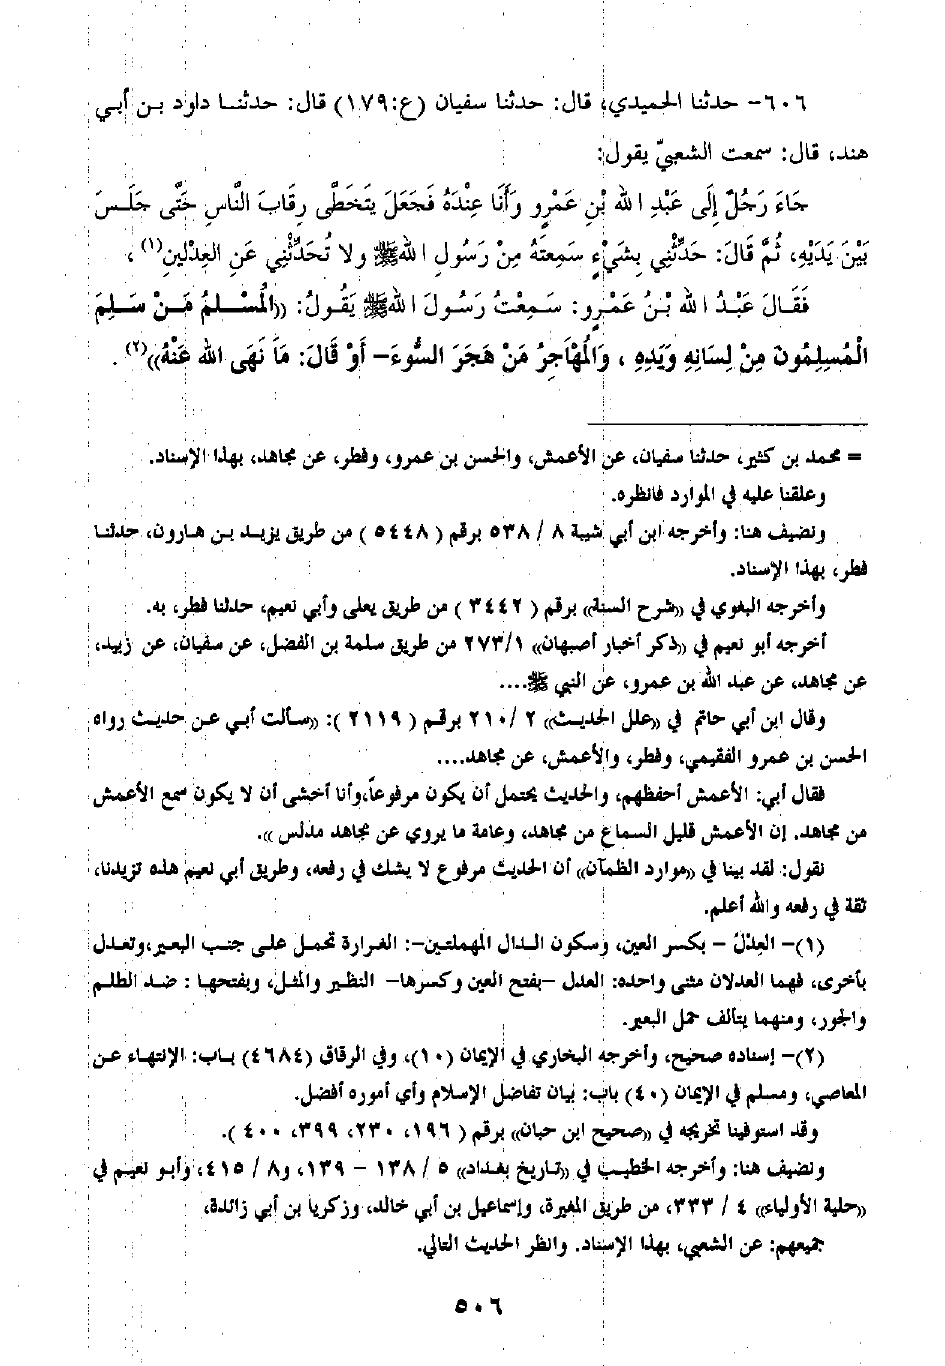 ٦٠٦- حدثنا الحميدي، قال: حدثنا سفيان (ع:١٧٩) قال: حدثنا داود بن أبي
هند، قال: سمعت الشعبيّ يقول:
جَاءَ رَجُلٌ إِلَى عَبْدِ اللهِ بْنِ عَمْرٍو وَأَنَا عِنْدَهُ فَجَعَلَ يَتَخَطَّى رِقَابَ النَّاسِ حَتَّى جَلَسَ
بَيْنَ يَدَيْهِ، ثُمَّ قَالَ: حَدِّثْنِي بِشَيْءٍ سَمِعتَهُ مِنْ رَسُولِ اللهِ ﷺ ولا تُحَدِّثْنِي عَنِ العِدْلَينِ(١)،
فَقَالَ عَبْدُ اللهِ بْنُ عَمْرٍو: سَمِعْتُ رَسُولَ اللهِ ﷺ يَقُولُ: ((الْمُسْلِمُ مَنْ سَلِمَ
الْمُسِلِمُونَ مِنْ لِسَانِهِ وَيَدِهِ، وَالْمُهَاجِرُ مَنْ هَجَرَ السُّوءَ- أَوْ قَالَ: مَا نَهَى اللهُ عَنْهُ))(٢).
= محمد بن كثير، حدثنا سفيان، عن الأعمش، والحسن بن عمرو، وفطر، عن مجاهد، بهذا الإسناد.
وعلقنا عليه في الموارد فانظره.
ونضيف هنا: وأخرجه ابن أبي شيبة ٨ / ٥٣٨ برقم ( ٥٤٤٨ ) من طريق يزيد بن هارون، حدثنا
فطر، بهذا الإسناد.
وأخرجه البغوي في ((شرح السنة)) برقم ( ٣٤٤٢ ) من طريق يعلى وأبي نعيم، حدثنا فطر، به.
أخرجه أبو نعيم في ((ذكر أخبار أصبهان)) ٢٧٣/١ من طريق سلمة بن الفضل، عن سفيان، عن زبيد،
عن مجاهد، عن عبد الله بن عمرو، عن النبي ﷺ....
وقال ابن أبي حاتم في ((علل الحديث)) ٢ /٢١٠ برقم ( ٢١١٩ ): ((سألت أبي عن حديث رواه
الحسن بن عمرو الفقيمي، وفطر، والأعمش، عن مجاهد....
فقال أبي: الأعمش أحفظهم، والحديث يحتمل أن يكون مرفوعاً،وأنا أخشى أن لا يكون سمع الأعمش
من مجاهد. إن الأعمش قليل السماع من مجاهد، وعامة ما يروي عن مجاهد مدلس )).
نقول: لقد بينا في ((موارد الظمآن)) أن الحديث مرفوع لا يشك في رفعه، وطريق أبي نعيم هذه تزيدنا،
ثقة في رفعه والله أعلم.
(١)- العِدْلُ - بكسر العين، وسكون الدال المهملتين-: الغرارة تحمل على جنب البعير،وتعدل
بأخرى، فهما العدلان مثنى واحده: العدل -بفتح العين وكسرها- النظير والمثل، وبفتحها : ضد الظلم
والجور، ومنهما يتألف حمل البعير.
(٢)- إسناده صحيح، وأخرجه البخاري في الإيمان (١٠)، وفي الرقاق (٤٦٨٤) باب: الإنتهاء عن
المعاصي، ومسلم في الإيمان (٤٠) باب: بيان تفاضل الإسلام وأي أموره أفضل.
وقد استوفينا تخريجه في ((صحيح ابن حبان)) برقم ( ١٩٦، ٢٣٠، ٣٩٩، ٤٠٠ ).
ونضيف هنا: وأخرجه الخطيب في ((تاريخ بغداد)) ٥ / ١٣٨ - ١٣٩، و٨ / ٤١٥، وأبو نعيم في
((حلية الأولياء)) ٤ / ٣٣٣، من طريق المغيرة، وإسماعيل بن أبي خالد، وزكريا بن أبي زائدة،
جميعهم: عن الشعبي، بهذا الإسناد. وانظر الحديث التالي.
٥٠٦